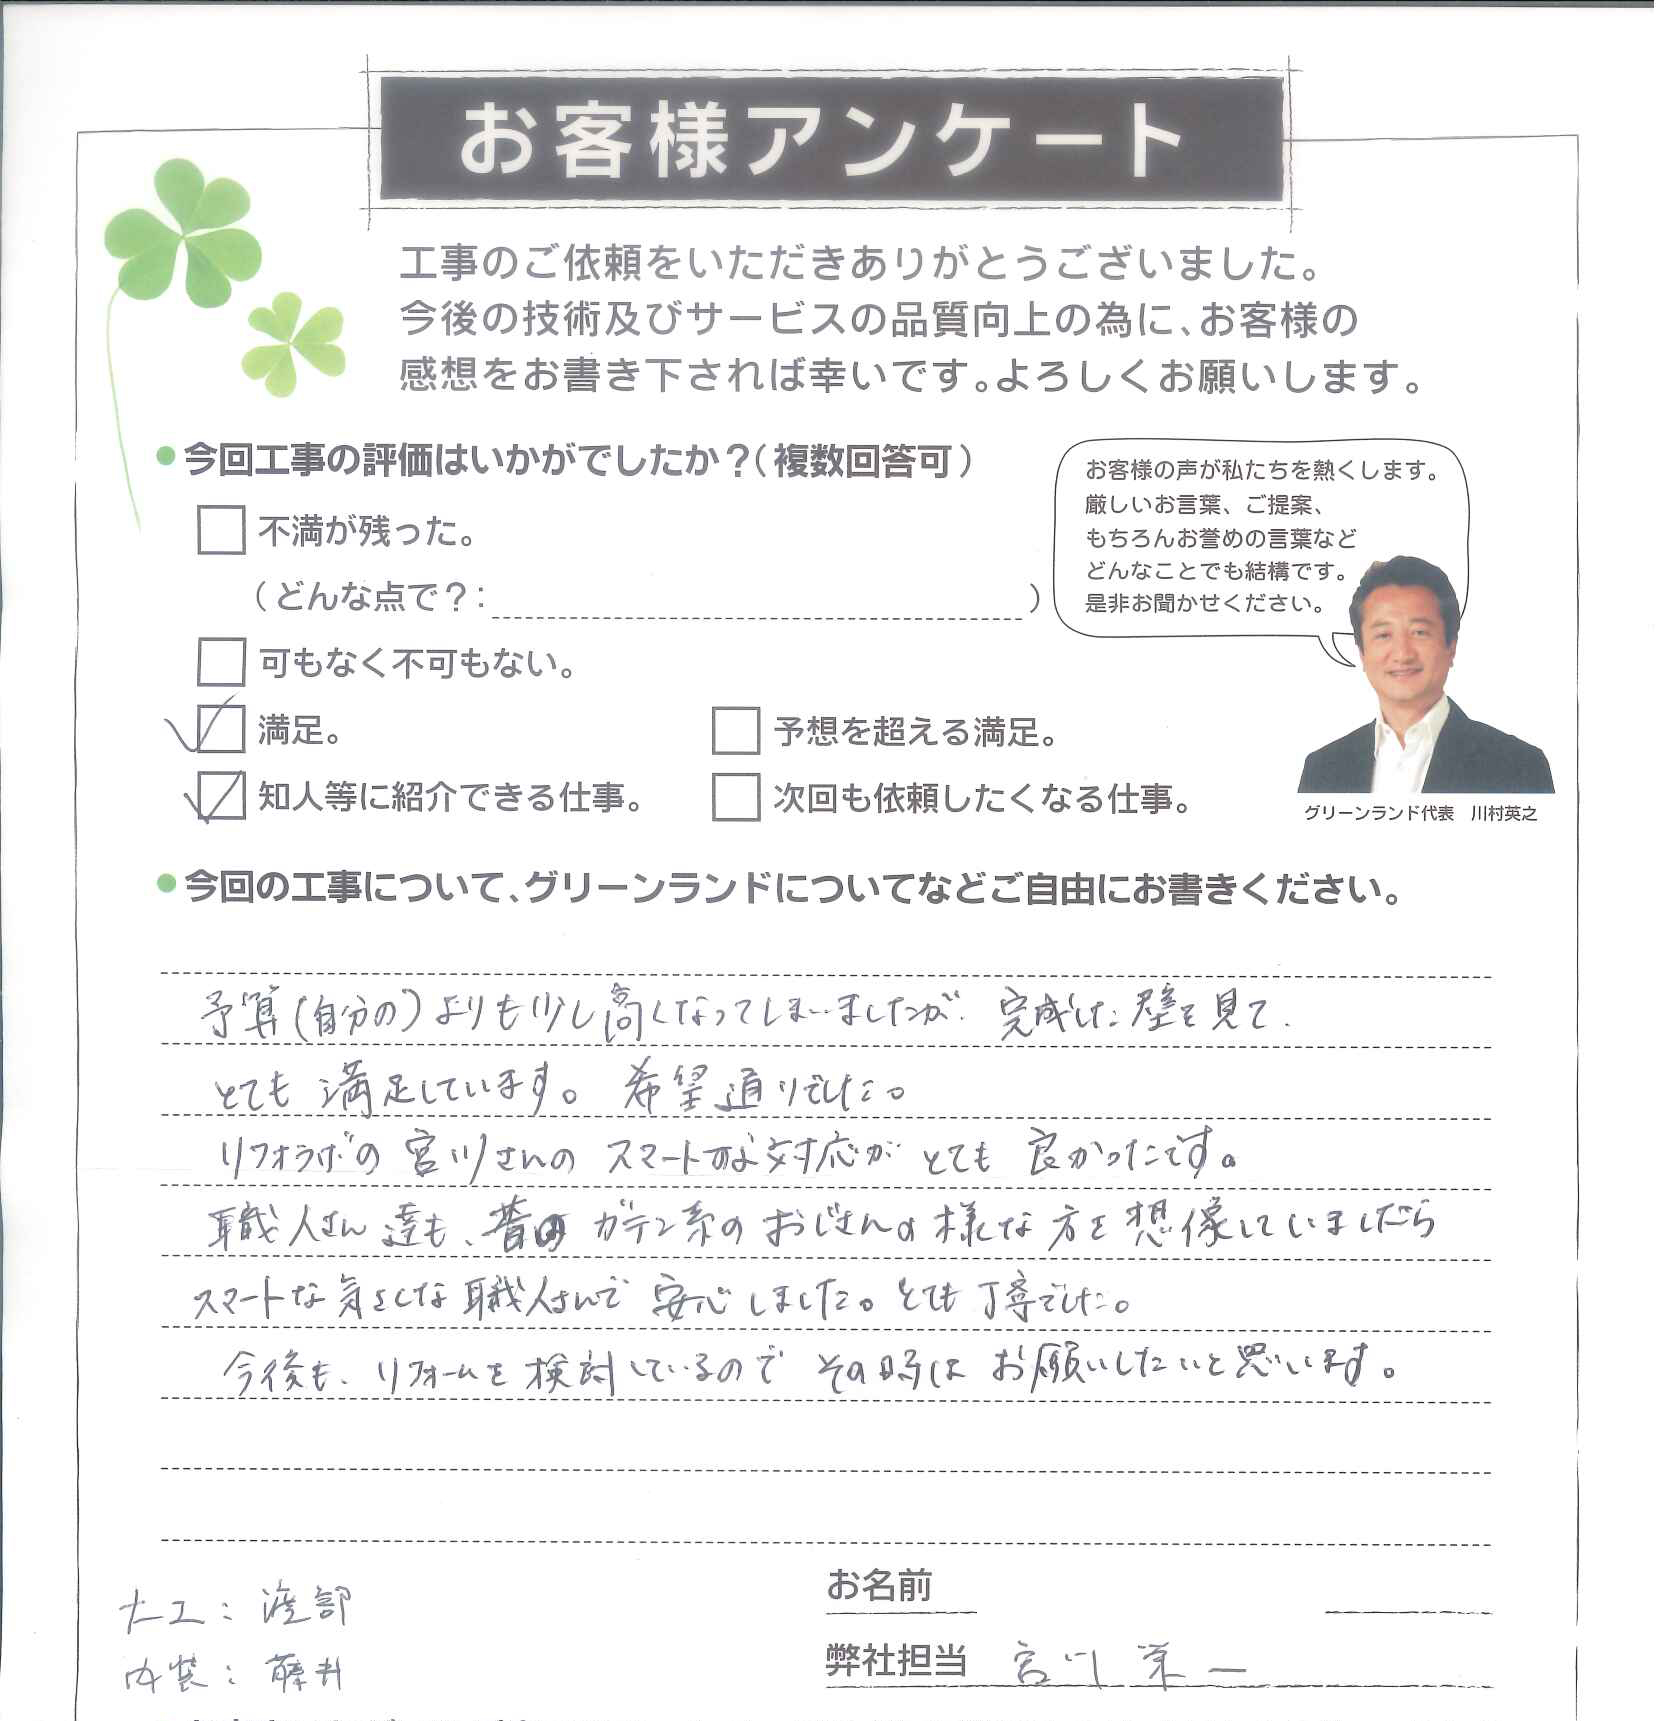 お客様アンケート
工事のご依頼をいただきありがとうございました。
今後の技術及びサービスの品質向上の為に、お客様の
感想をお書き下されば幸いです。よろしくお願いします。
今回工事の評価はいかがでしたか？（複数回答可）
不満が残った。
（どんな点で？： ）
可もなく不可もない。
満足。
予想を超える満足。
知人等に紹介できる仕事。
次回も依頼したくなる仕事。
お客様の声が私たちを熱くします。
厳しいお言葉、ご提案、
もちろんお誉めの言葉など
どんなことでも結構です。
是非お聞かせください。
グリーンランド代表 川村英之
今回の工事について、グリーンランドについてなどご自由にお書きください。
予算(自分の)よりも少し高くなってしまいましたが、完成した壁を見て、
とても満足しています。希望通りでした。
リフォラボの宮川さんのスマートな対応がとても良かったです。
職人さん達も、ガテン系のおじさんの様な方を想像していましたら
スマートな気さくな職人さんで安心しました。とても丁寧でした。
今後も、リフォームを検討しているのでその時はお願いしたいと思います。
大工：渡部
内装：藤井
お名前
弊社担当 宮川 栄一